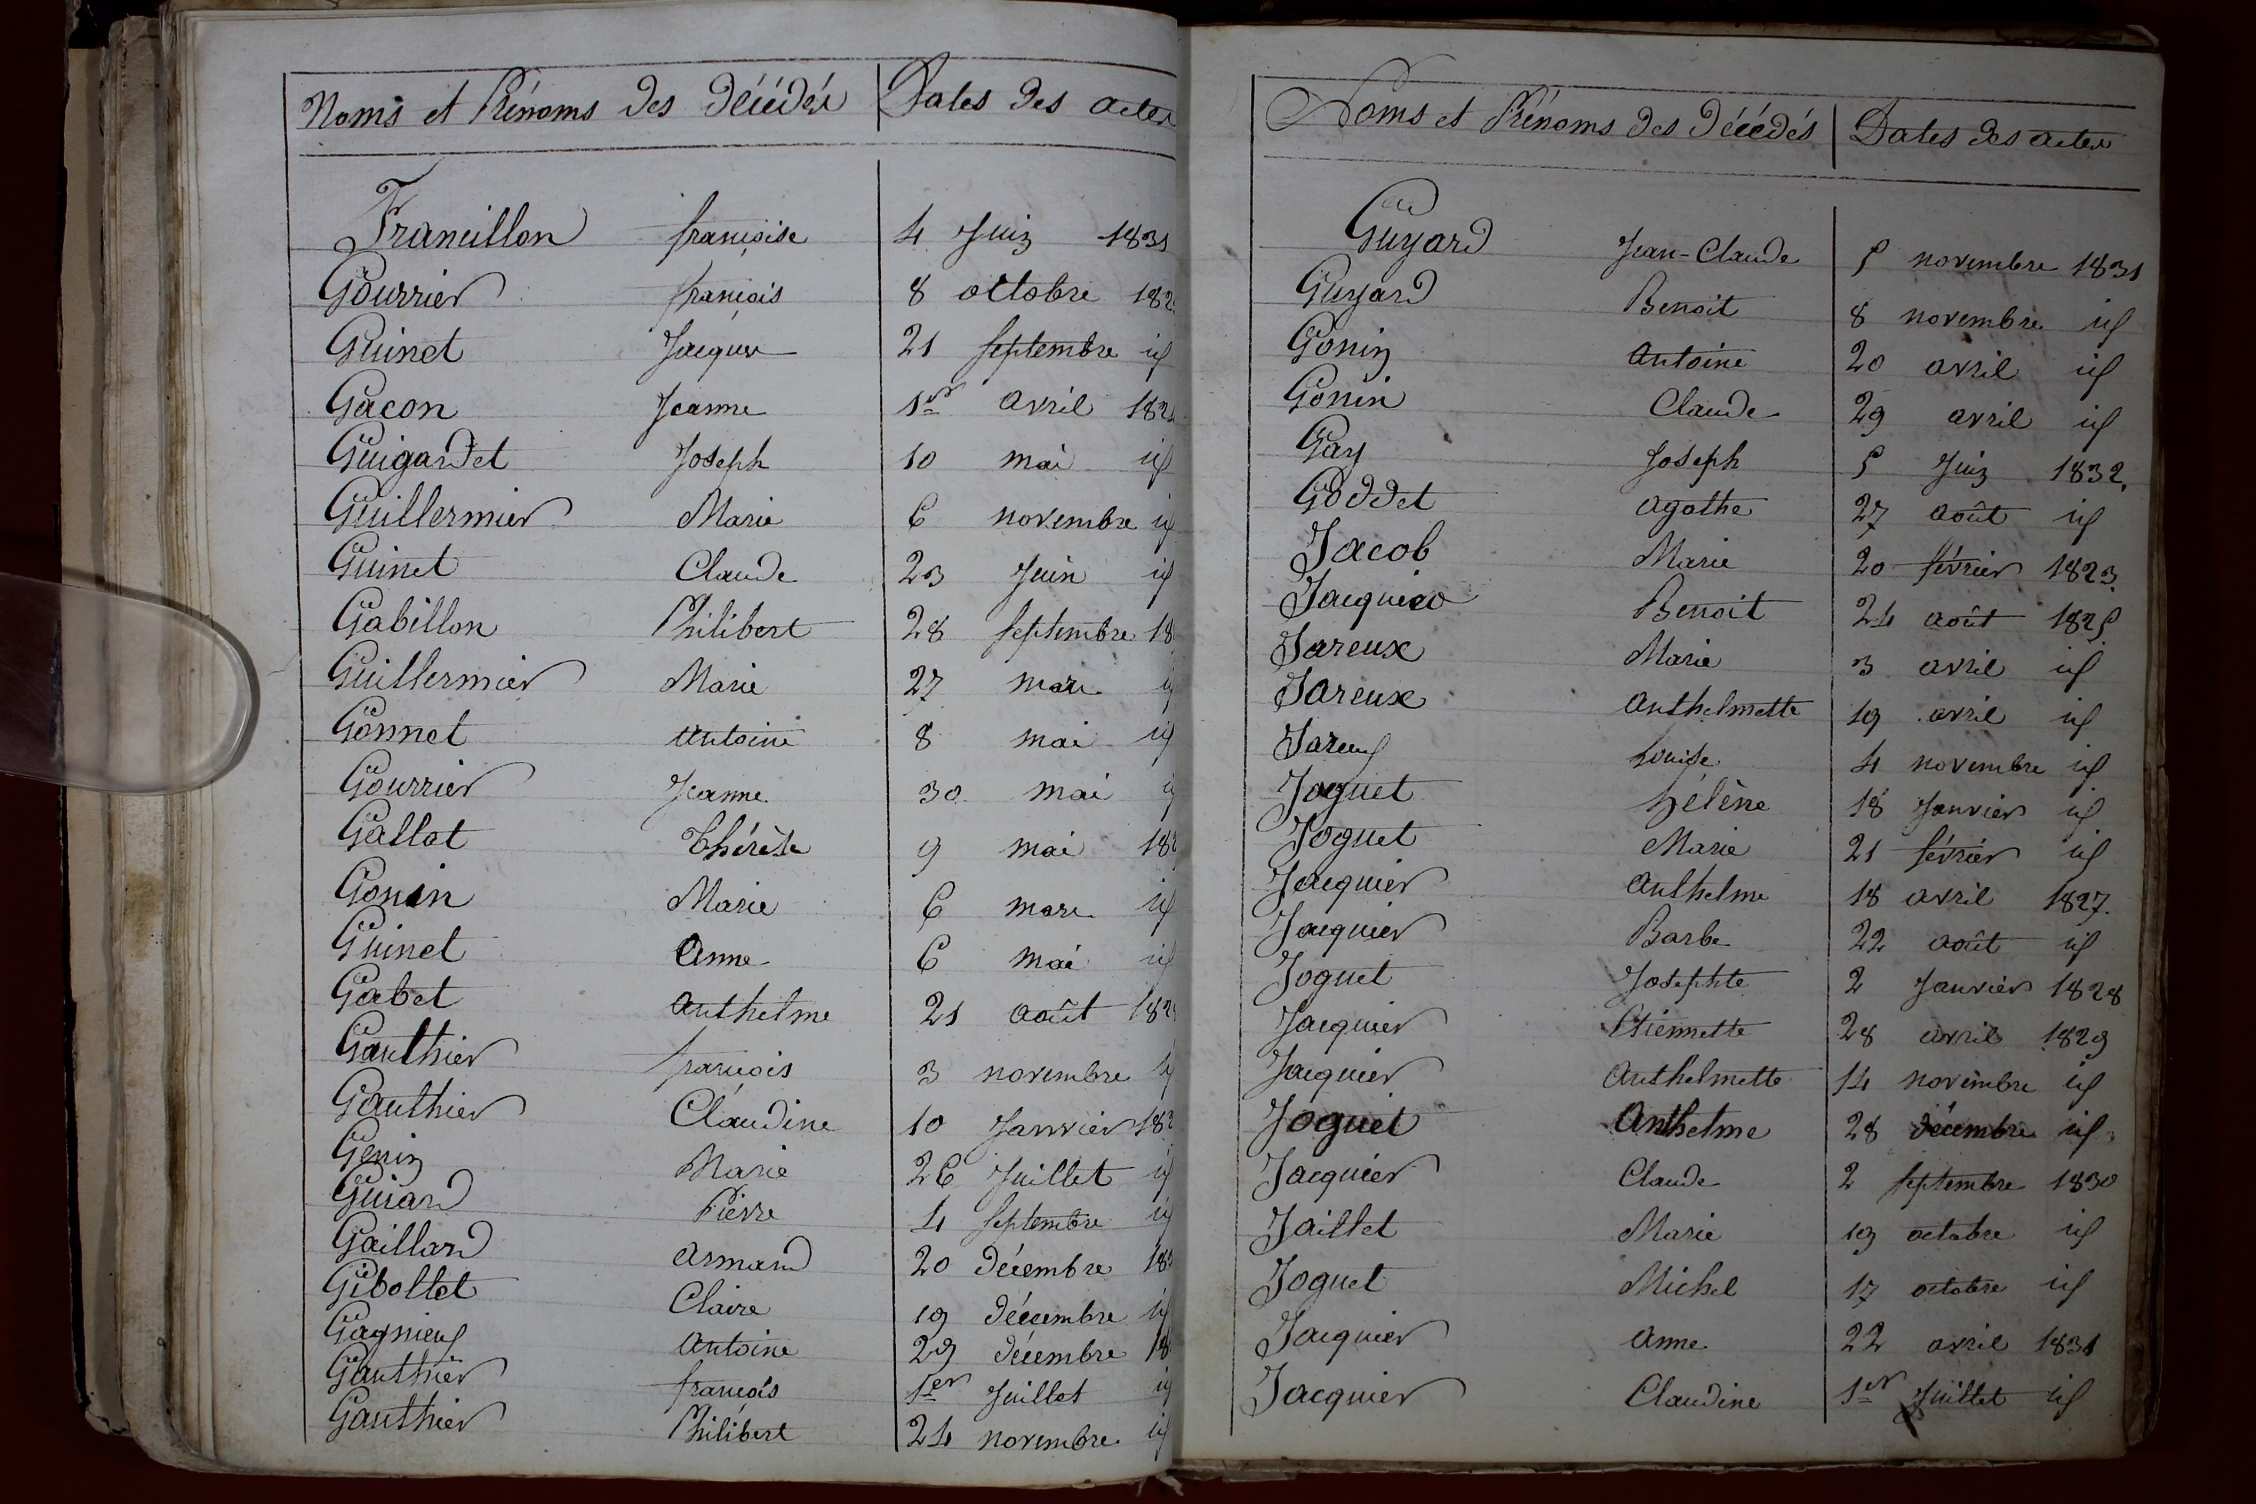 Noms et Prénoms des Décédés Dates des actes
Francillon françoise 4 Juin 1831
Gourrier françois 8 octobre
Guinet Jacques 21 septembre id
Gacon Jeanne 1er avril
Guigardet Joseph 10 mai id
Guillermier Marie 6 novembre id
Guinet Claude 23 Juin id
Gabillon Philibert 28 septembre
Guillermier Marie 27 mars
Gonnet antoine 8 mai id
Gourrier Jeanne 30 mai
Gallet thérèse 9 mai
Gonin Marie 6 mars id
Guinet Anne 6 mai id
Gabet anthelme 21 août
Gauthier françois 3 novembre
Gauthier Claudine 10 Janvier
Genin Marie 26 Juillet id
Guiard Pierre 4 septembre id
Gaillard armand 20 décembre
Gibollet Claire 19 décembre id
Gagnieux antoine 29 décembre
Gauthier françois 1er Juillet
Gauthier Philibert 24 novembre id
Noms et Prénoms des Décédés Dates des actes
Guyard Jean-Claude 5 novembre 1831
Guyard Benoit 8 novembre id
Gonin antoine 20 avril id
Gonin Claude 29 avril id
Gay Joseph 5 Juin 1832
Goddet agathe 27 août id
Jacob Marie 20 février 1823
Jacquier Benoit 24 août 1825
Jareux Marie 3 avril id
Jareux anthelmette 19 avril id
Jareux Louise 4 novembre id
Joguet hélène 18 Janvier id
Joguet Marie 21 février id
Jacquier anthelme 18 avril 1827
Jacquier Barbe 22 août id
Joguet Josephte 2 Janvier 1828
Jacquier Etiennette 28 avril 1829
Jacquier anthelmette 14 novembre id
Joguet Anthelme 28 décembre id
Jacquier Claude 2 septembre 1830
Jaillet Marie 19 octobre id
Joguet Michel 17 octobre id
Jacquier anne 22 avril 1831
Jacquier Claudine 1er Juillet id